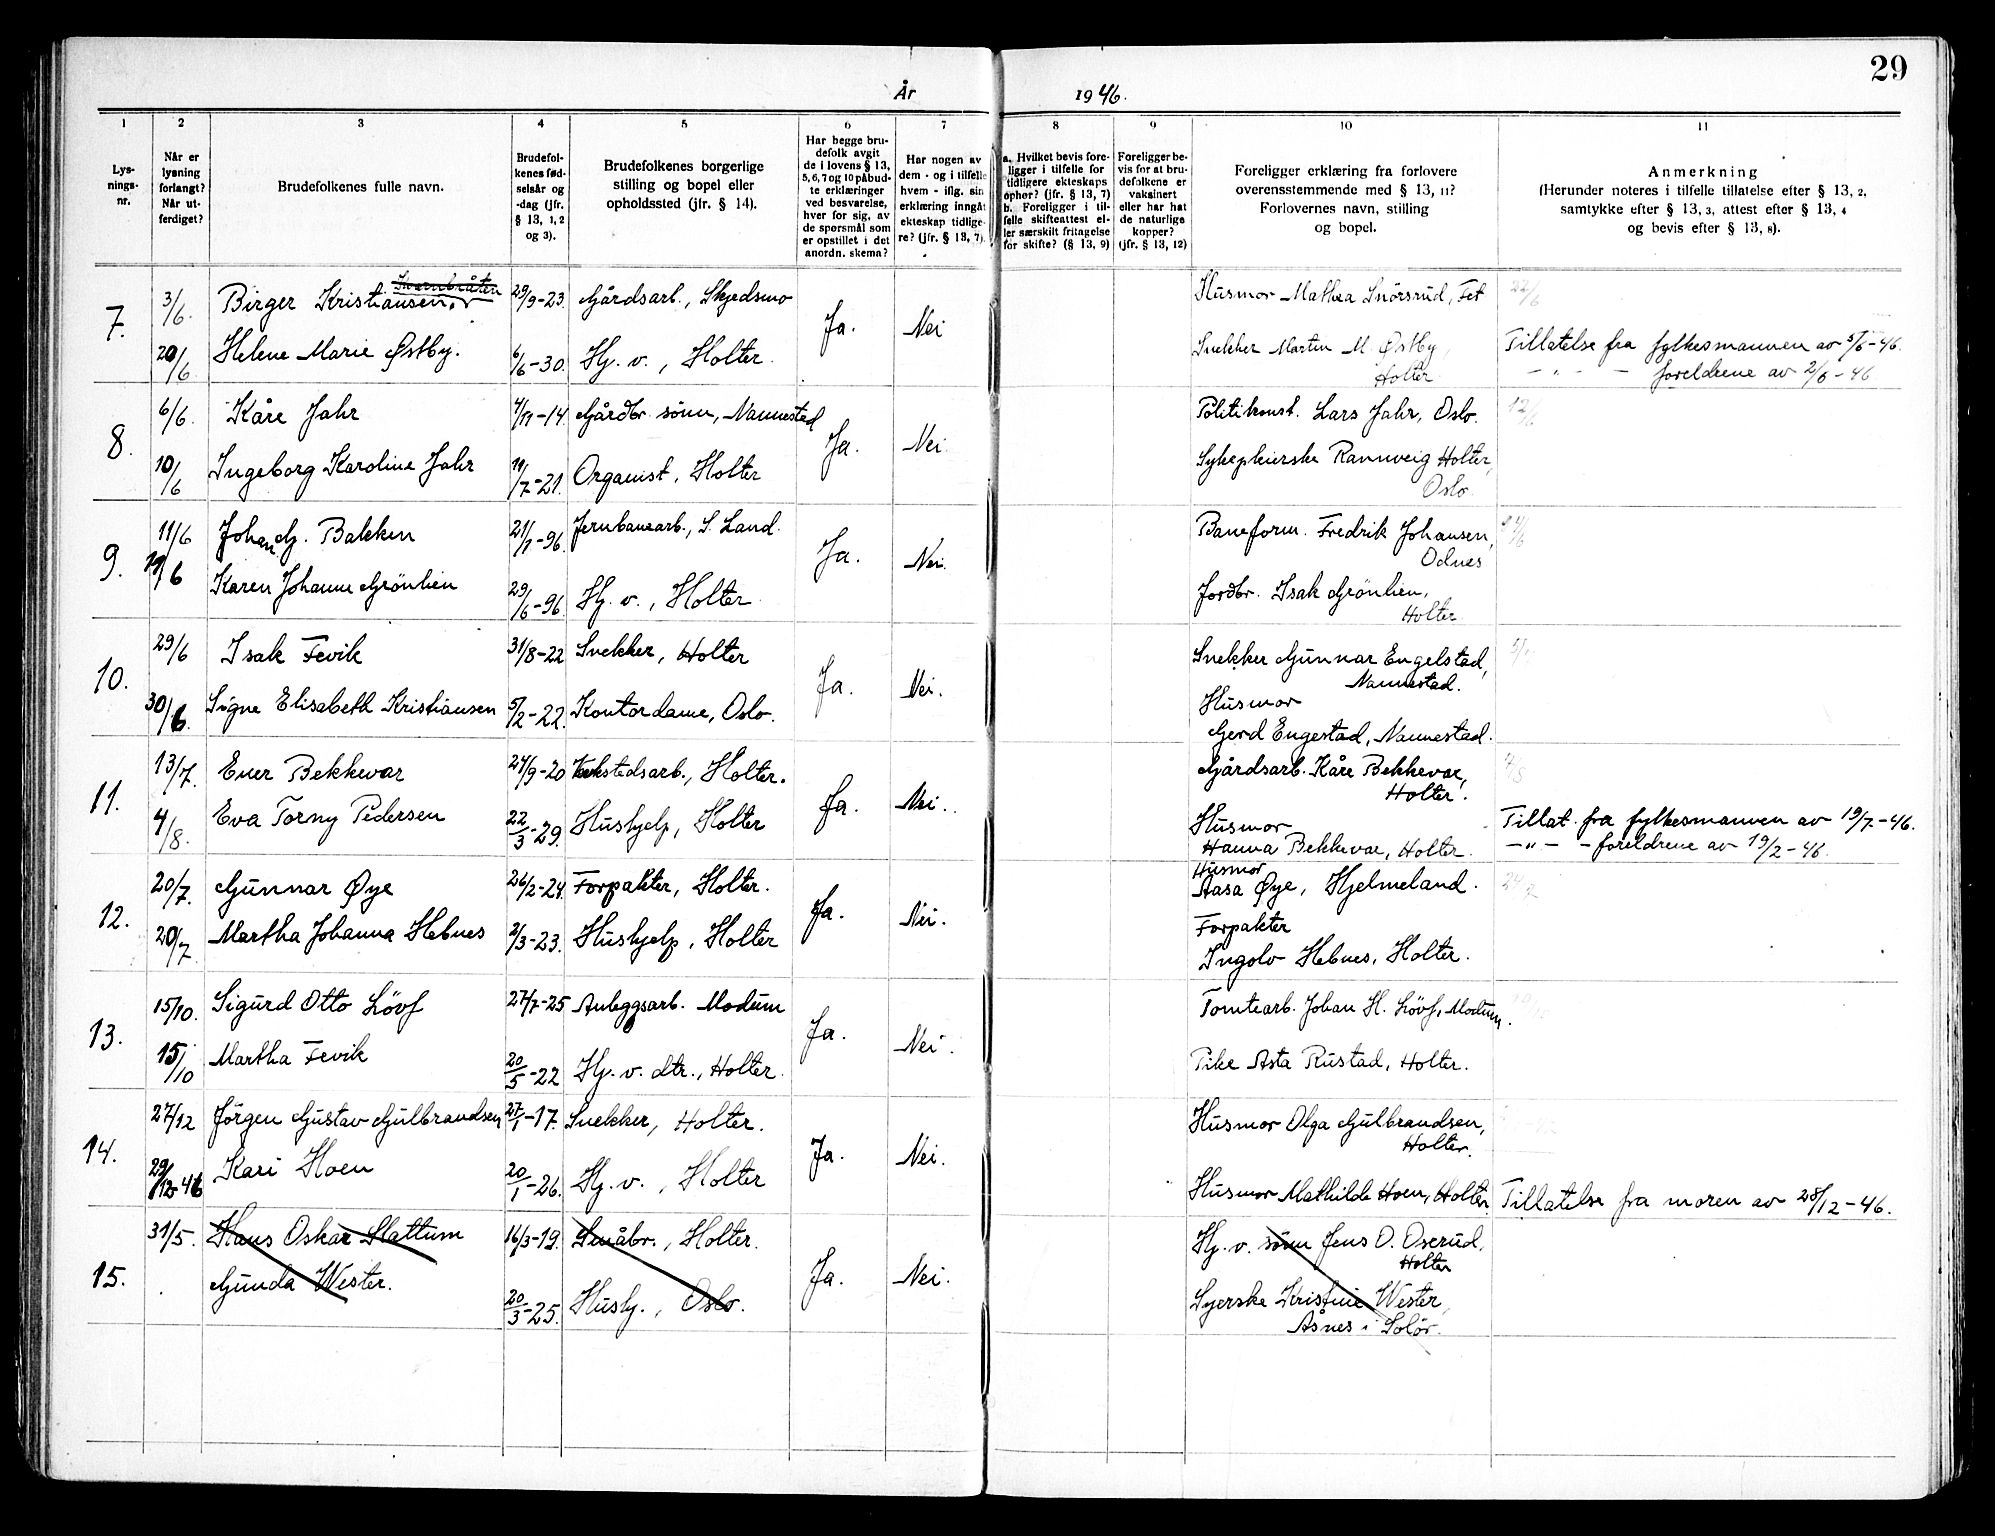 29
År 1946.
1 2 3 4 5 6 7 8 9 10 11
Lys-
nings-
nr.
Når er
lysning
forlangt?
Når ut-
ferdiget?
Brudefolkenes fulle navn.
Brudefol-
kenes fød-
selsår og
-dag (jfr.
§ 13, 1, 2
og 3).
Brudefolkenes borgerlige
stilling og bopel eller
opholdssted (jfr. § 14).
Har begge bru-
defolk avgit
de i lovens § 13,
5, 6, 7 og 10 påbud-
te erklæringer
ved besvarelse,
hver for sig, av
de spørsmål som
er opstillet i det
anordn. skema?
Har nogen av
dem - og i tilfelle
hvem - iflg. sin
erklæring inngåt
ekteskap tidlige-
re? (jfr. § 13, 7).
a. Hvilket bevis fore-
ligger i tilfelle for
tidligere ekteskaps
ophør? (jfr. § 13, 7)
b. Foreligger i til-
felle skifteattest el-
ler særskilt fritagelse
for skifte? (§ 13, 9)
Foreligger be-
vis for at bru-
defolkene er
vaksinert
eller har hat
de naturlige
kopper?
(jfr. § 13, 12)
Foreligger erklæring fra forlovere
overensstemmende med § 13, 11?
Forlovernes navn, stilling
og bopel.
Anmerkning
(Herunder noteres i tilfelle tillatelse efter § 13, 2,
samtykke efter § 13, 3, attest efter § 13, 4
og bevis efter § 13, 8).
7. 3/6. Birger Kristiansen 29/9-23. Gårdsarb., Skjedsmo Ja. Nei Husmor Mathea Snörsrud, Fet 22/6
20/6 Helene Marie Østby. 6/6-30. Hj. v., Holter. Snekker Martin M. Østby, Tillatelse fra fylkesmannen av 5/6-46.
Holter - " - - foreldrene av 2/6-46
8. 6/6. Kåre Jahr 4/11-14 Gårdbr. sönn, Nannestad Ja. Nei Politikonst. Lars Jahr, Oslo. 12/6
10/6 Ingeborg Karoline Jahr 19/7-21. Organist, Holter Sykepleierske Rannveig Holter,
Oslo.
9. 11/6 Johan G. Bakken 21/1-96. Jernbanearb., S. Land. Ja. Nei. Baneform. Fredrik Johansen,
Odnes
11/6 Karen Johanne Grönlien 29/6-96. Hj. v., Holter. Jordbr. Isak Grönlien,
Holter
10. 29/6 Isak Fevik 31/8-22 Snekker, Holter Ja. Nei. Snekker Gunnar Engelstad,
Nannestad.
30/6. Signe Elisabeth Kristiansen 5/2-22. Kontordame, Oslo. Husmor
Gerd Engestad, Nannestad.
11. 13/7. Ener Bekkevar 24/9-20 Verkstedsarb., Holter. Ja. Nei. Gårdsarb. Kåre Bekkevar,
Holter.
4/8. Eva Torny Pedersen 22/3-29. Hushjelp, Holter Husmor Tillat. fra fylkesmannen av 19/7-46.
Hanna Bekkevar, Holter. - " - - foreldrene av 19/2-46.
12. 20/7. Gunnar Øye 26/2-24. Forpakter, Holter. Ja. Nei. Husmor
Aasa Øye, Hjelmeland.
20/7. Martha Johanna Hebnes 2/3-23. Hushjelp, Holter Forpakter
Ingolv Hebnes, Holter.
13. 15/10. Sigurd Otto Lövf 27/7-25 Anleggsarb. Modum Ja. Nei. Tomtearb. Johan H. Lövf, Modum.
15/10 Martha Fevik 20/5-22 Hj. v. dtr., Holter. Pike Asta Rustad, Holter.
14. 27/12 Jörgen Gustav Gulbrandsen 27/1-17. Snekker, Holter. Ja. Nei. Husmor Olga Gulbrandsen,
Holter.
29/12-46 Kari Hoen 20/1-26. Hj. v., Holter Husmor Mathilde Hoen, Holter. Tillatelse fra moren av 28/12-46.
15. 31/5. Hans Oskar Slattum 16/3-19. Småbr., Holter. Ja. Nei. Hj. v. sönn Jens O. Oserud,
Holter
Gunda Wester. 20/3-25. Hushj., Oslo. Syerske Kristine Wester,
Åsnes i Solör.